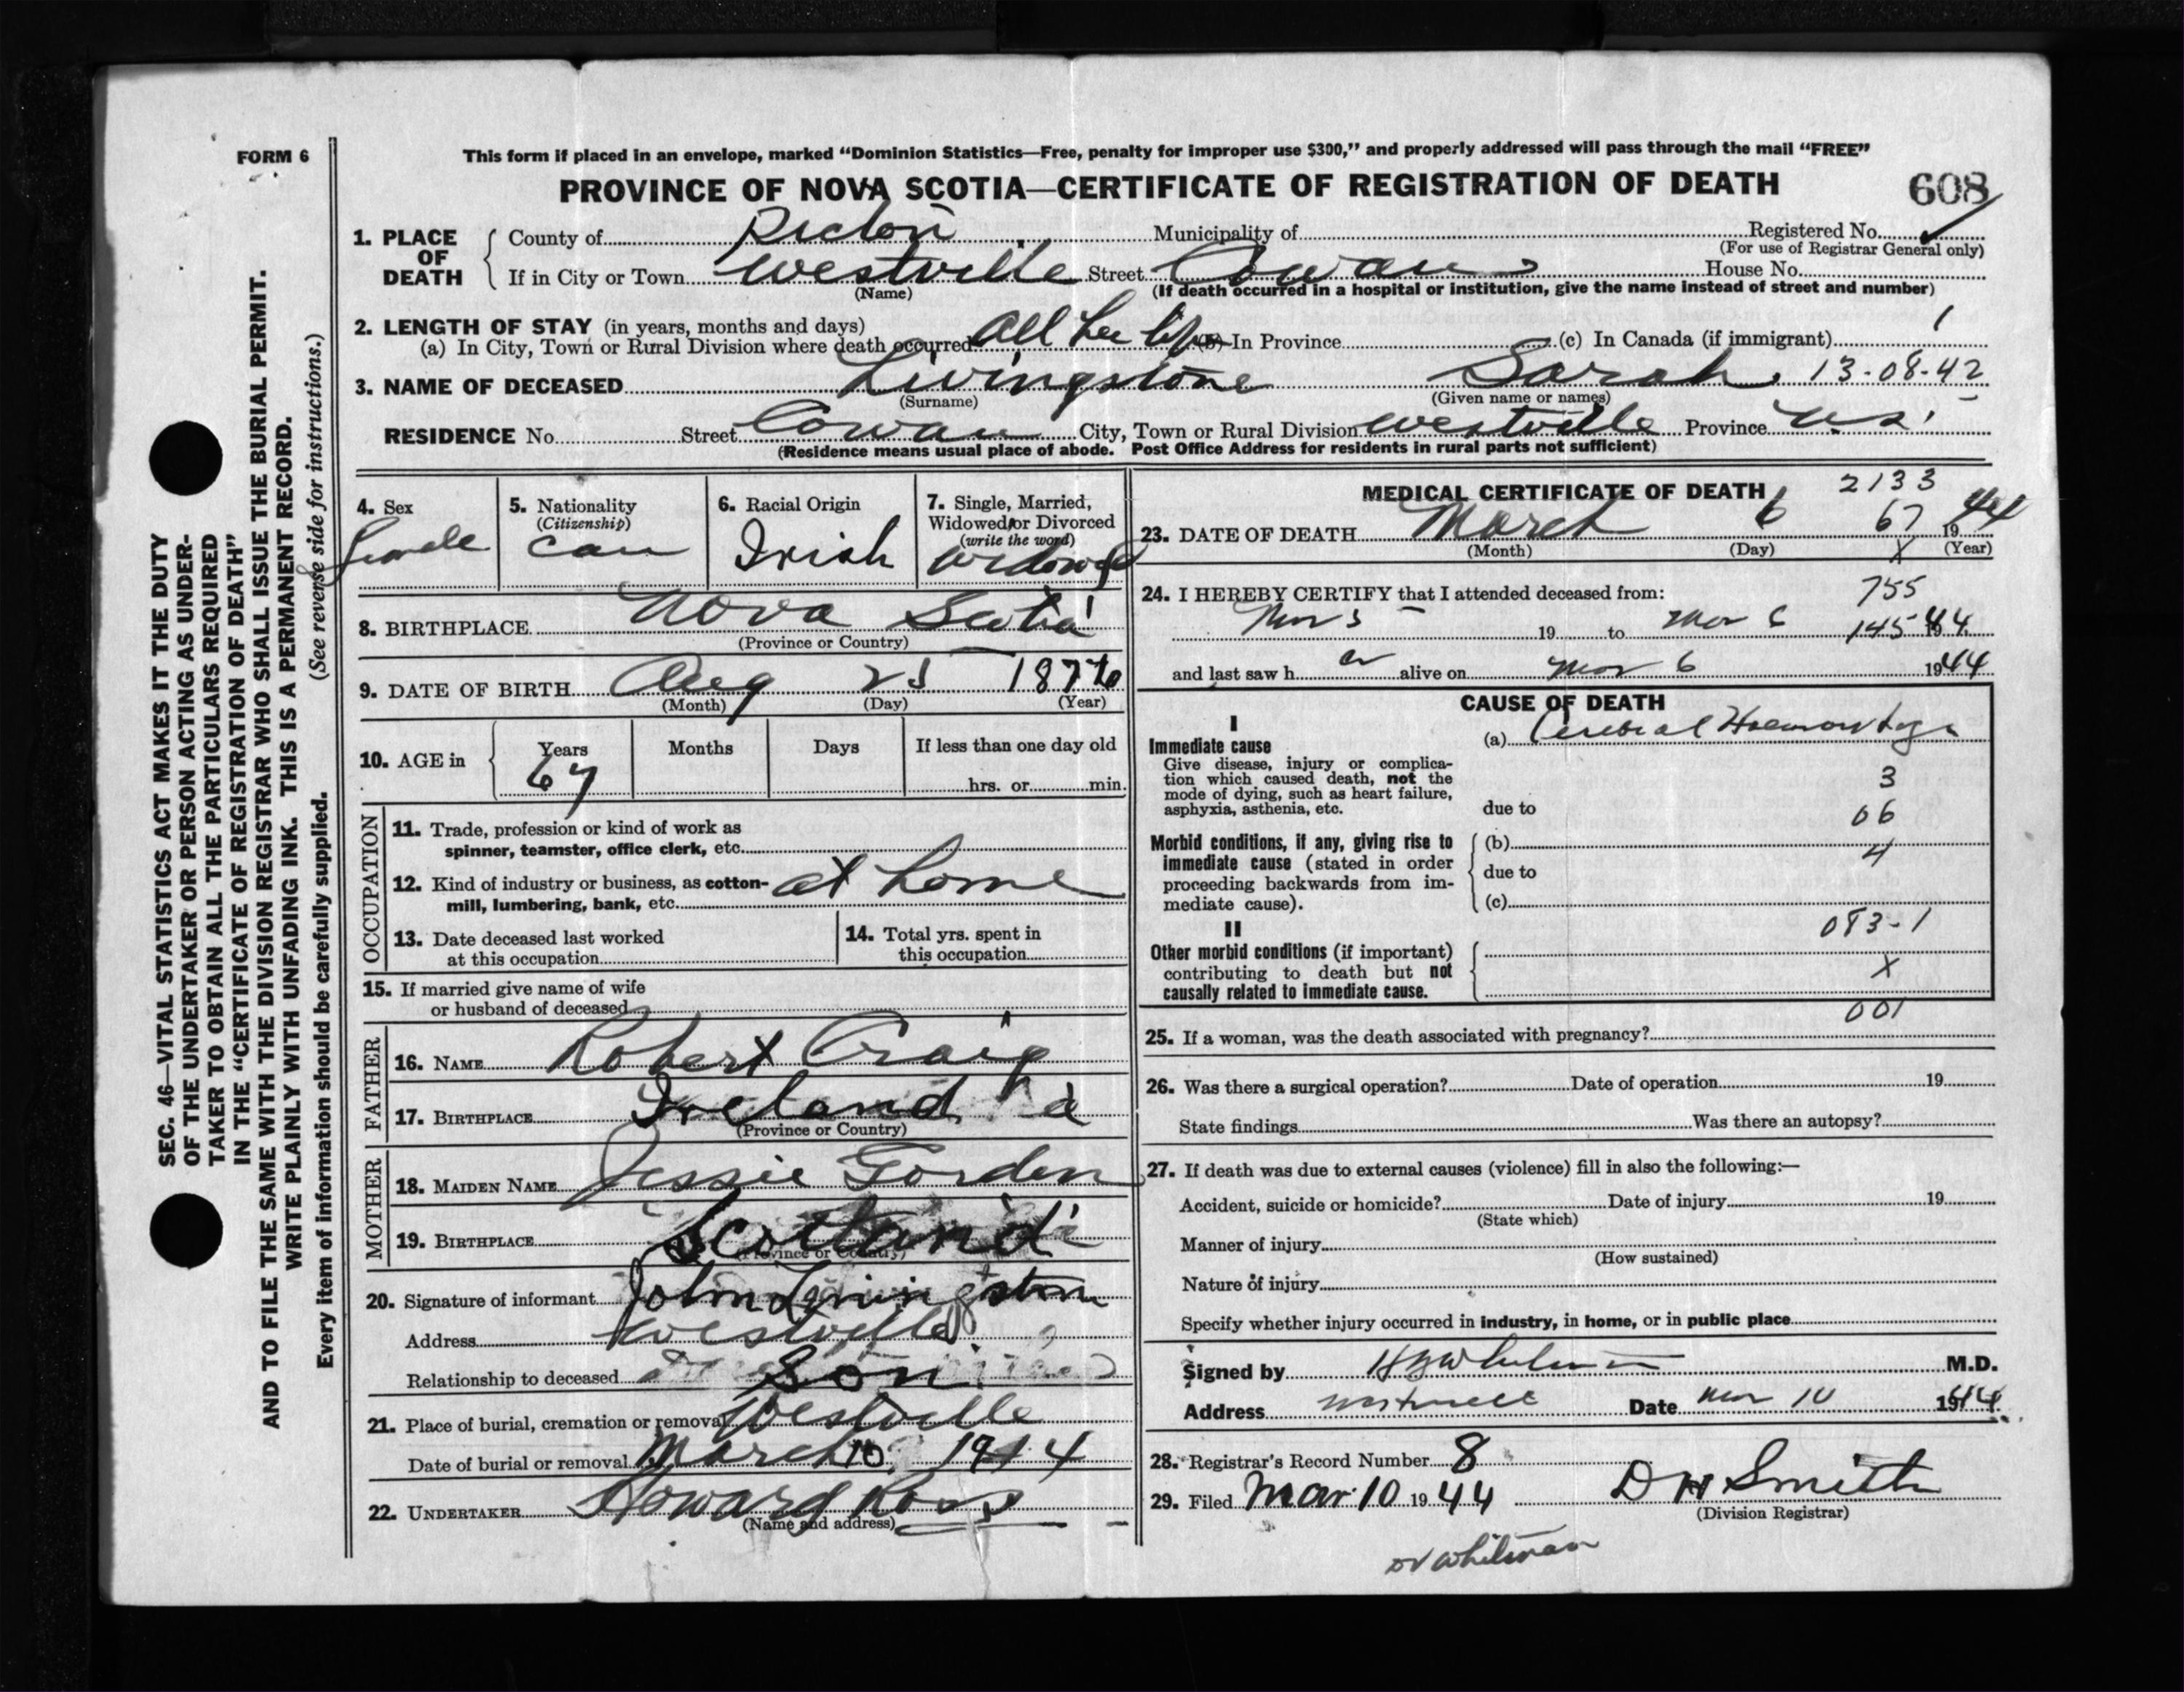 FORM 6
This form if placed in an envelope, marked “Dominion Statistics—Free, penalty for improper use $300,” and properly addressed will pass through the mail “FREE”
PROVINCE OF NOVA SCOTIA—CERTIFICATE OF REGISTRATION OF DEATH 608
1. PLACE OF DEATH
County of Pictou Municipality of Registered No.
(For use of Registrar General only)
If in City or Town Westville Street Cowan House No.
(Name) (If death occurred in a hospital or institution, give the name instead of street and number)
2. LENGTH OF STAY (in years, months and days)
(a) In City, Town or Rural Division where death occurred All her life (b) In Province (c) In Canada (if immigrant) 1
3. NAME OF DECEASED Livingstone Sarah. 13-08-42
(Surname) (Given name or names)
RESIDENCE No. Street Cowan City, Town or Rural Division Westville Province N.S.
(Residence means usual place of abode. Post Office Address for residents in rural parts not sufficient)
4. Sex Female
5. Nationality (Citizenship) Can
6. Racial Origin Irish
7. Single, Married, Widowed or Divorced (write the word) Widowed
8. BIRTHPLACE Nova Scotia
(Province or Country)
9. DATE OF BIRTH Aug 25 1876
(Month) (Day) (Year)
10. AGE in Years 67 Months Days If less than one day old
hrs. or min.
OCCUPATION
11. Trade, profession or kind of work as
spinner, teamster, office clerk, etc.
12. Kind of industry or business, as cotton-
mill, lumbering, bank, etc. at home
13. Date deceased last worked
at this occupation
14. Total yrs. spent in
this occupation
15. If married give name of wife
or husband of deceased
FATHER
16. NAME Robert Craig
17. BIRTHPLACE Ireland
(Province or Country)
MOTHER
18. MAIDEN NAME Jessie Gorden
19. BIRTHPLACE Scotland
(Province or Country)
20. Signature of informant John Livingston
Address Westville
Relationship to deceased Son
21. Place of burial, cremation or removal Westville
Date of burial or removal March 10 1944
22. UNDERTAKER Howard Ross
(Name and address)
MEDICAL CERTIFICATE OF DEATH 2133
23. DATE OF DEATH March 6 67 1944
(Month) (Day) X (Year)
24. I HEREBY CERTIFY that I attended deceased from: 755
Mar 5 19 to Mar 6 145 1944
and last saw her alive on Mar 6 1944
CAUSE OF DEATH
I
Immediate cause (a) Cerebral Haemorrhage
Give disease, injury or complica-
tion which caused death, not the
mode of dying, such as heart failure,
asphyxia, asthenia, etc.
3
due to 06
Morbid conditions, if any, giving rise to
immediate cause (stated in order
proceeding backwards from im-
mediate cause).
(b)
4
due to
(c)
083-1
II
Other morbid conditions (if important)
contributing to death but not
causally related to immediate cause.
X
001
25. If a woman, was the death associated with pregnancy?
26. Was there a surgical operation? Date of operation 19
State findings Was there an autopsy?
27. If death was due to external causes (violence) fill in also the following:—
Accident, suicide or homicide? Date of injury 19
(State which)
Manner of injury
(How sustained)
Nature of injury
Specify whether injury occurred in industry, in home, or in public place
Signed by Whitman M.D.
Address Westville Date Mar 10 1944
28. Registrar's Record Number 8
29. Filed Mar 10 1944 D H Smith
(Division Registrar)
Dr Whitman
SEC. 46—VITAL STATISTICS ACT MAKES IT THE DUTY
OF THE UNDERTAKER OR PERSON ACTING AS UNDER-
TAKER TO OBTAIN ALL THE PARTICULARS REQUIRED
IN THE “CERTIFICATE OF REGISTRATION OF DEATH”
AND TO FILE THE SAME WITH THE DIVISION REGISTRAR WHO SHALL ISSUE THE BURIAL PERMIT.
WRITE PLAINLY WITH UNFADING INK. THIS IS A PERMANENT RECORD.
Every item of information should be carefully supplied. (See reverse side for instructions.)